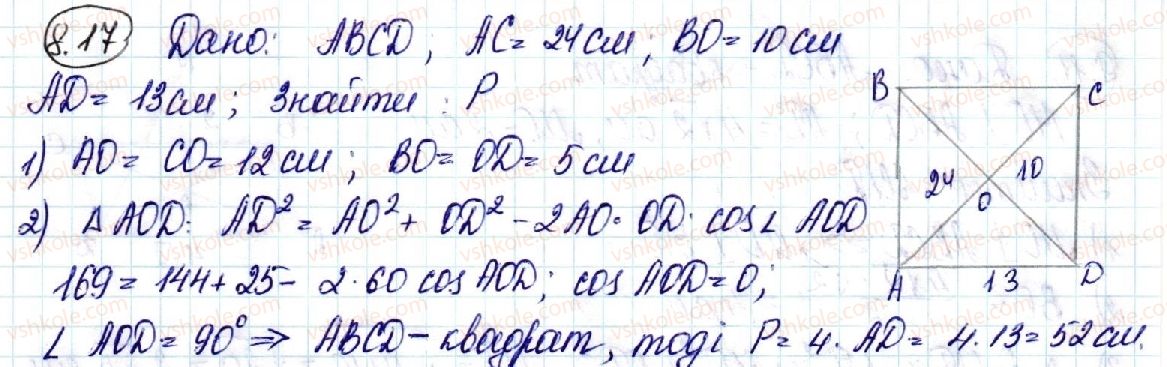 8.17 Дано: ABCD; AC = 24 см; BO = 10 см
AD = 13 см; Знайти : P
1) AO = CO = 12 см; BO = OD = 5 см
2) Δ AOD: AD² = AO² + OD² - 2AO · OD · cos∠ AOD
169 = 144 + 25 - 2 · 60 cos AOD; cos AOD = 0;
∠ AOD = 90° ⇒ ABCD - квадрат, тоді P = 4 · AD = 4 · 13 = 52 см.
B C
24 10
O
A 13 D